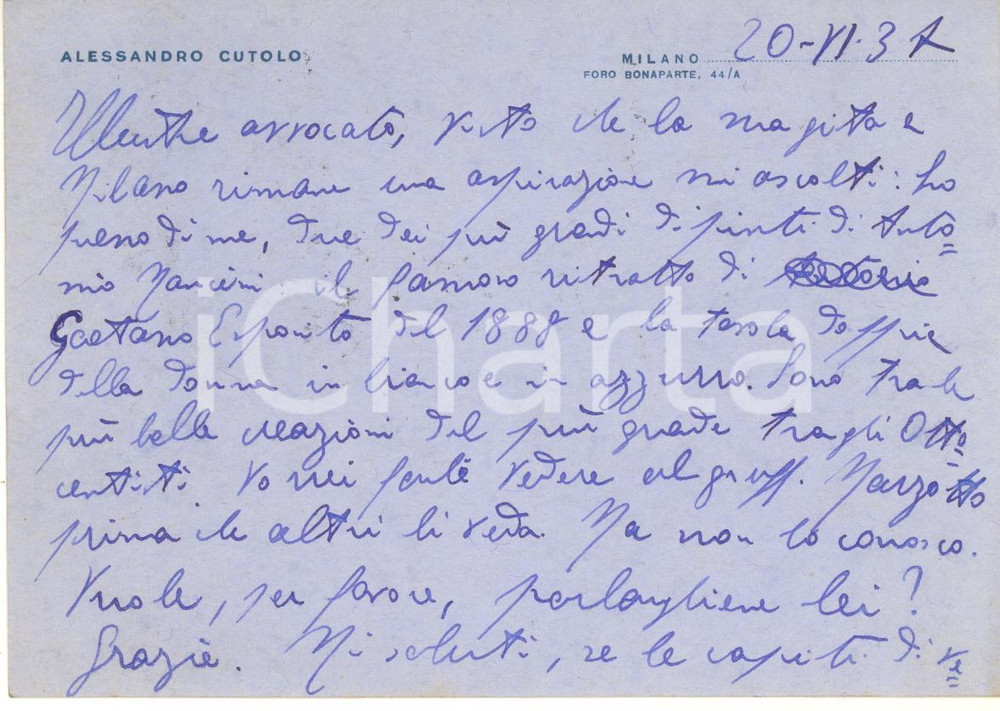 ALESSANDRO CUTOLO
MILANO 20-VI-37
FORO BONAPARTE, 44/A
Illustre avvocato, visto che la sua gita a
Milano rimane una aspirazione mi ascolti: ho
presso di me, due dei più grandi dipinti di Anto=
nio Mancini: il famoso ritratto di
Gaetano Esposito del 1888 e la tavola doppia
della donna in bianco e in azzurro. Sono tra le
più belle creazioni del più grande tra gli Otto=
centisti. Vorrei farle vedere al gr. uff. Marzotto
prima che altri li veda. Ma non lo conosco.
Vuole, per favore, parlargliene lei?
Grazie. Mi saluti, se le capita di ve=
iCharta